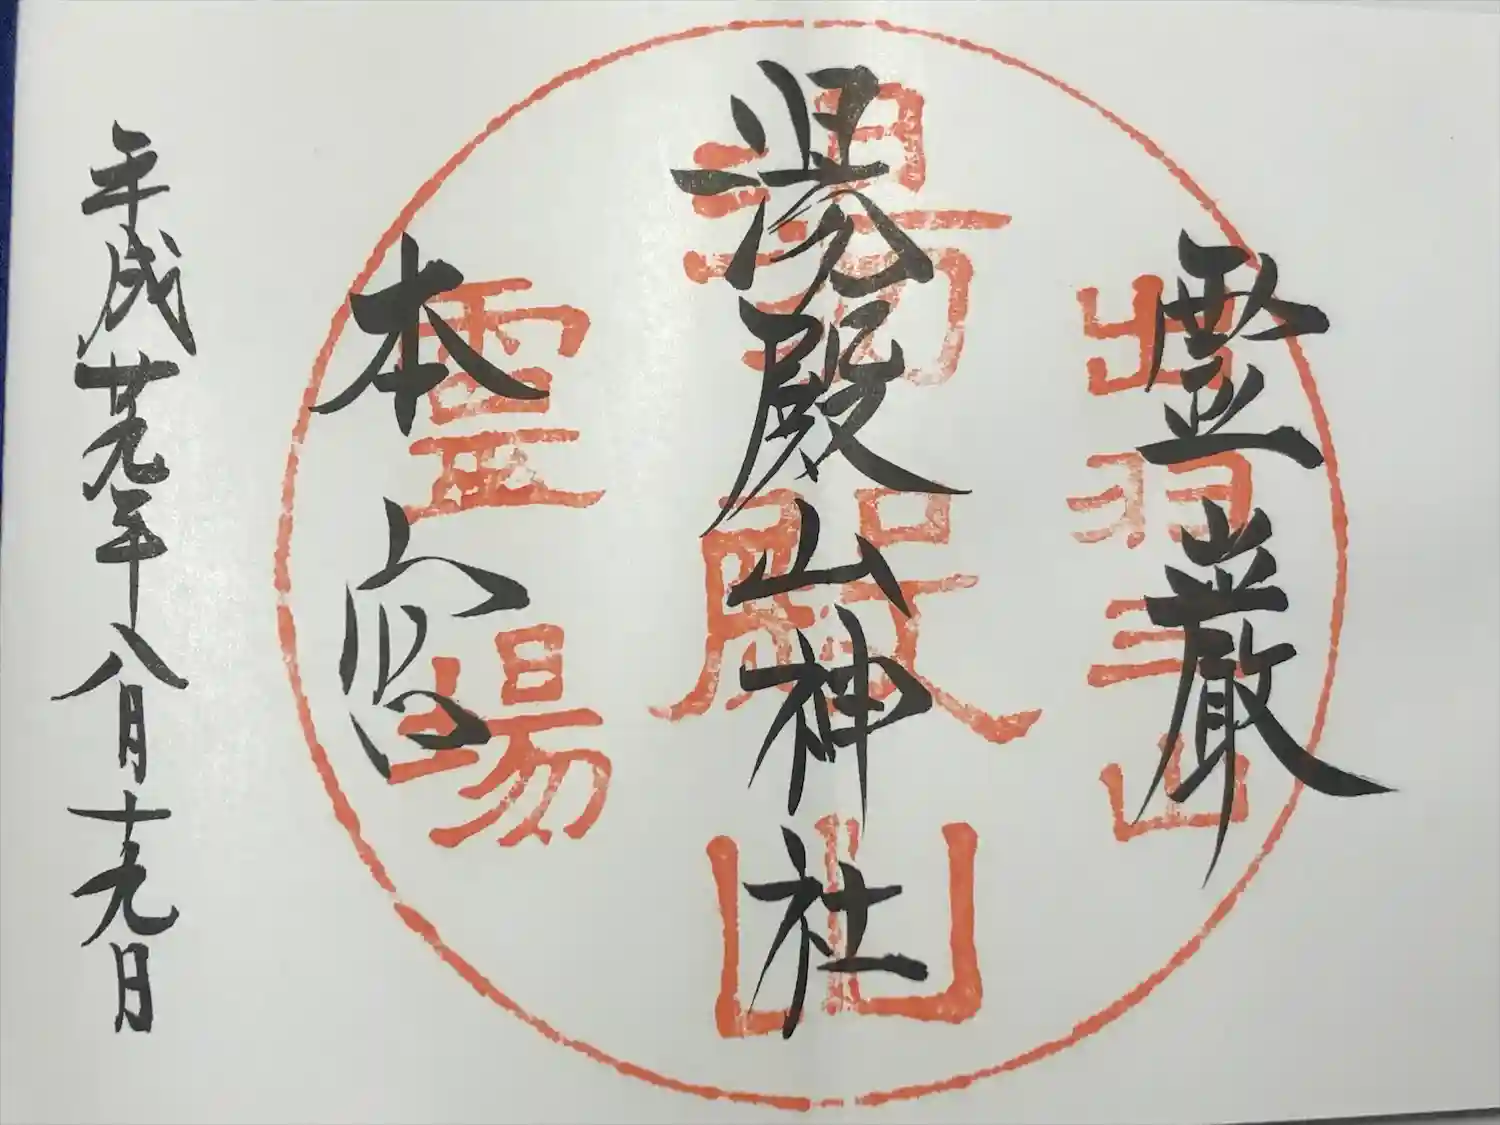 霊巌
出羽三山
湯殿山神社
湯殿山
本宮
霊場
平成廿九年八月十九日